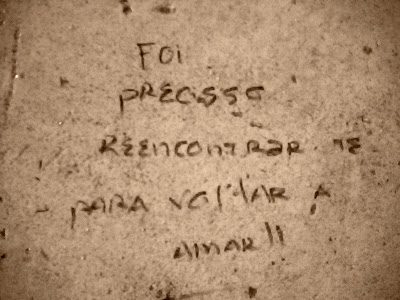 FOI
PRECISSO
REENCONTRAR TE
PARA VOLTAR A
AMAR!!